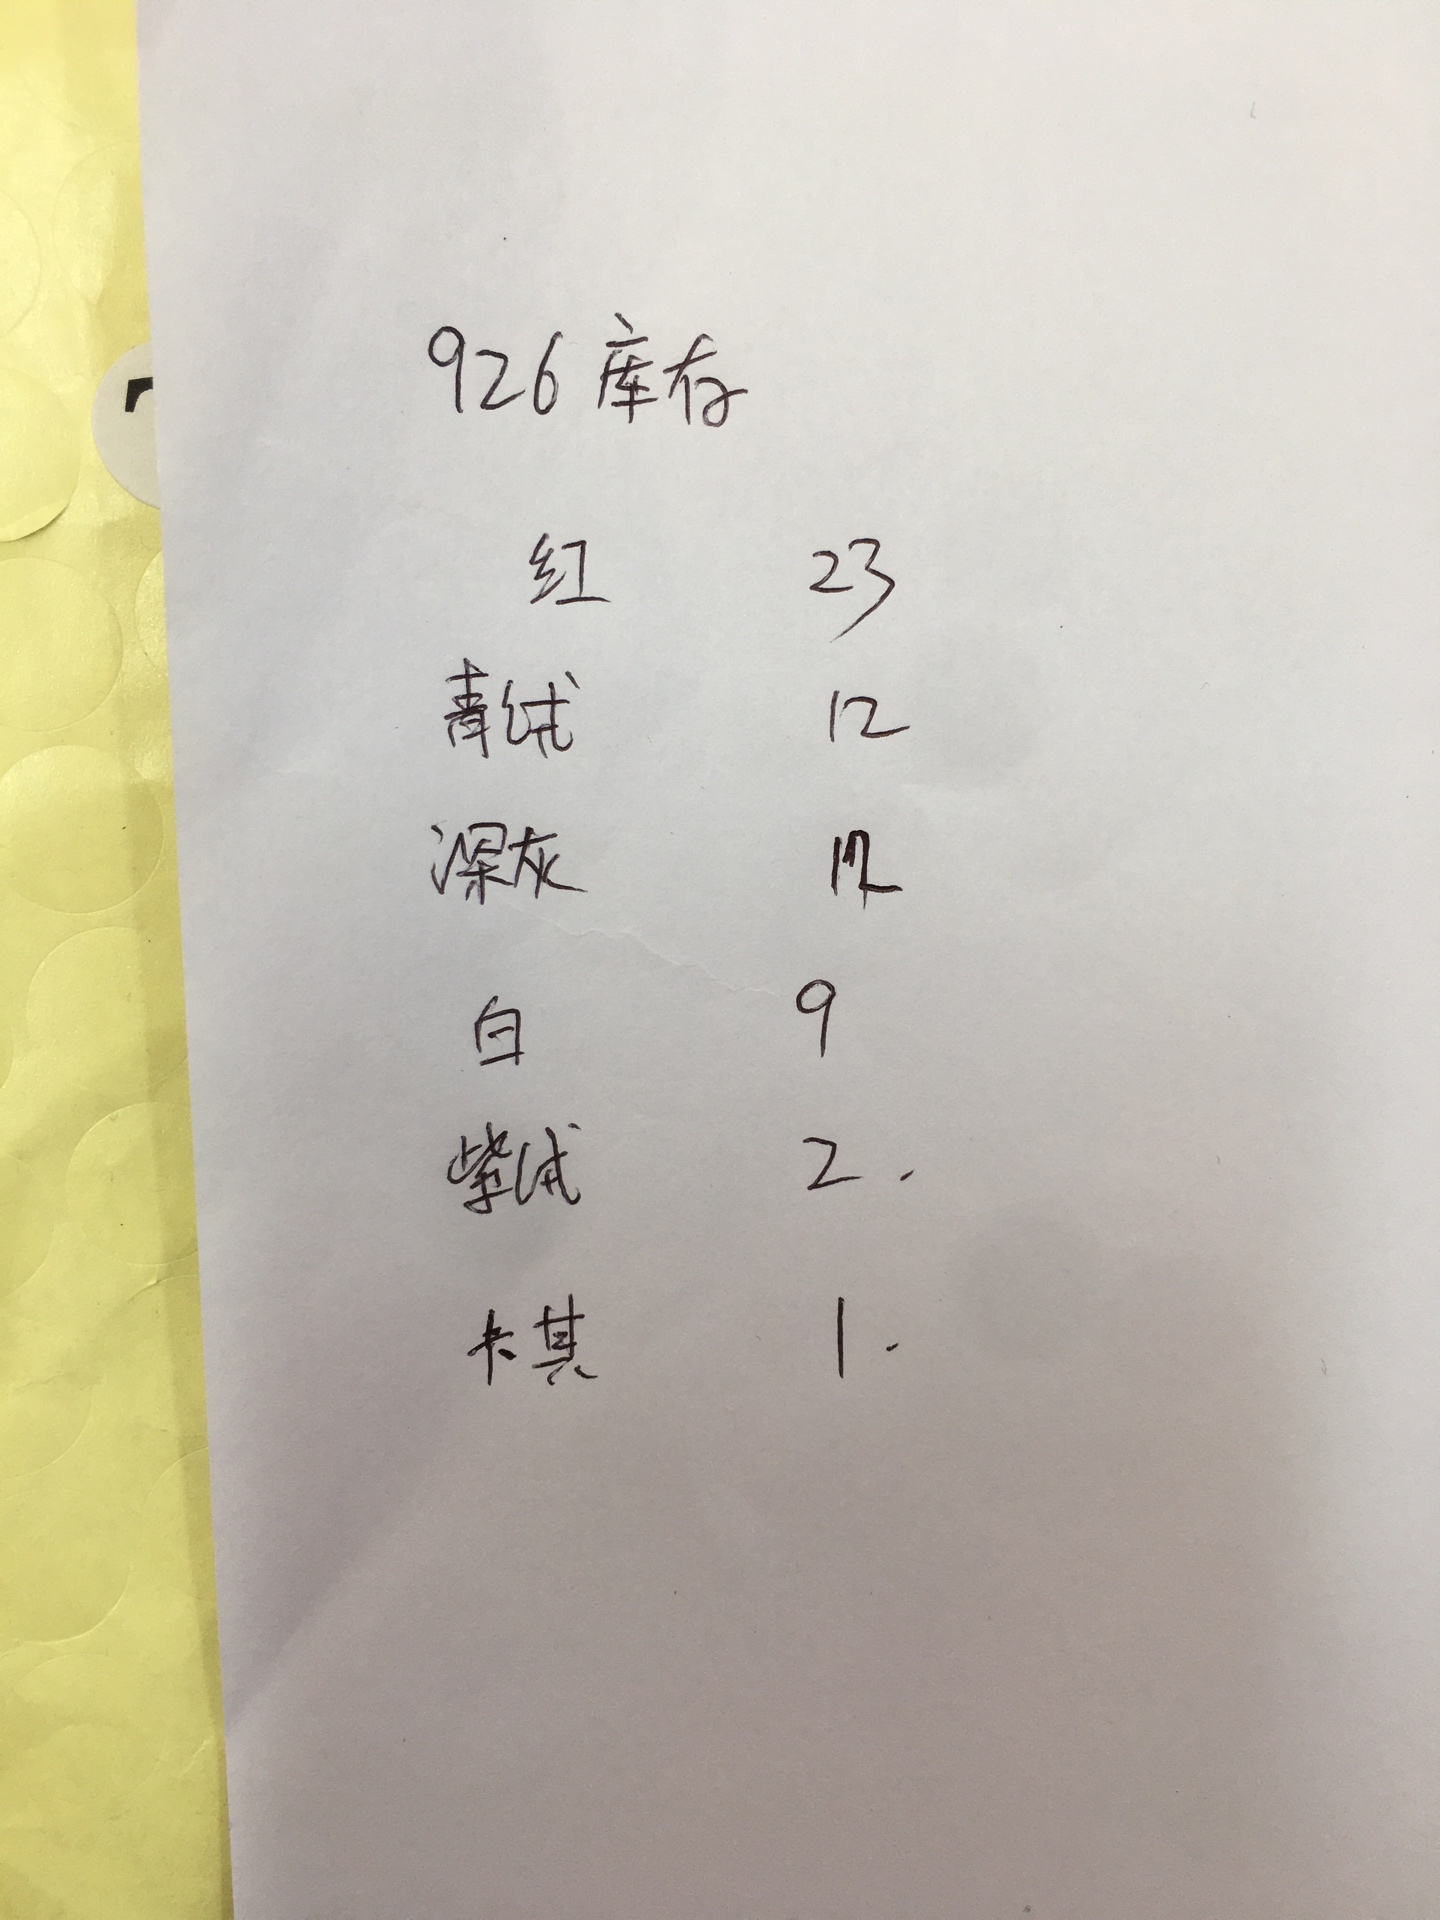 926库存
红 23
青绒 12
深灰
白 9
紫绒 2.
卡其 1.